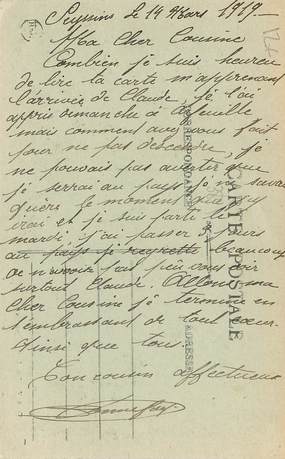 Seyssins le 14 Mars 1919.
Ma Cher Cousine
Combien je suis heureux
de lire la carte m'apprenant
l'arrivée de Claude, je l'ai
appris dimanche à
mais comment avez vous fait
pour ne pas descendre, je
ne pouvais pas avertir que
je serrai au pays je ne savais
guère le moment que j'y
irai et je suis parti le
mardi, j'ai passer jours
au pays je regrette beaucoup
de n'avoir pas pu vous voir
surtout Claude. Allons ma
Cher Cousine je termine en
t'embrassant de tout cœur
ainsi que tous.
Ton cousin affectueux
CARTE POSTALE
CORRESPONDANCE
ADRESSE